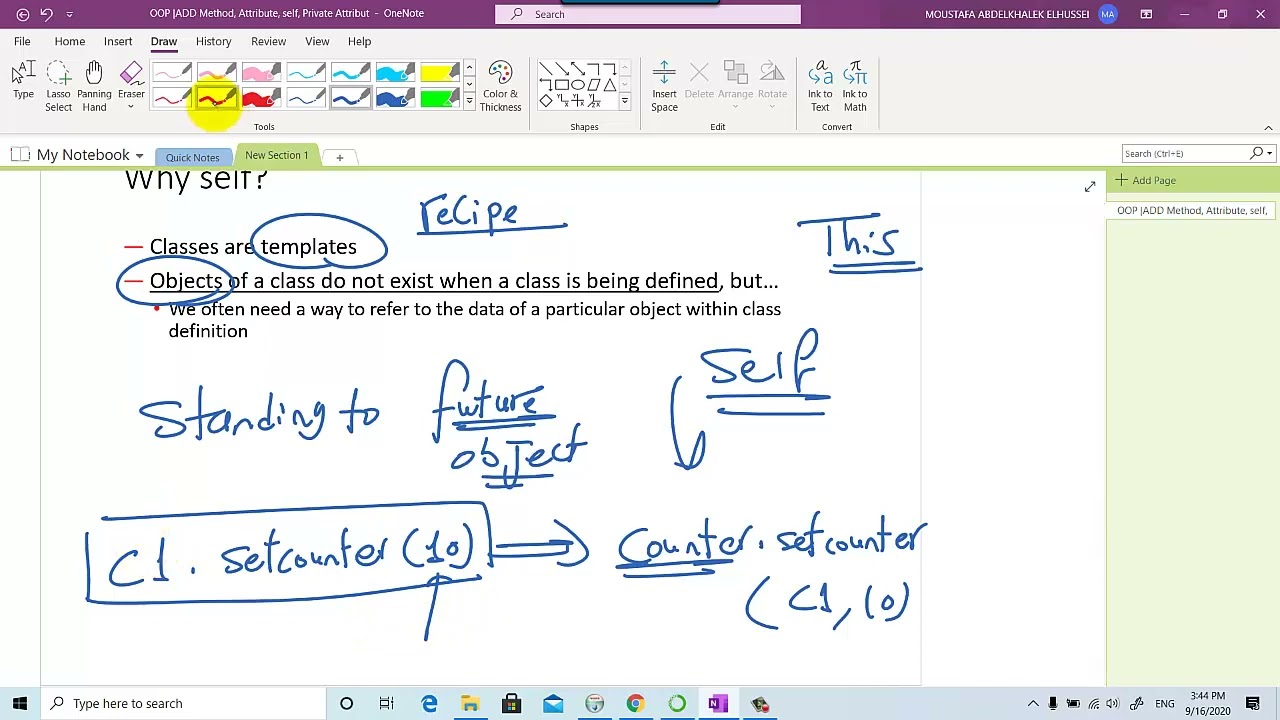 OOP |ADD Method, Attribute, self, Private Attribut - OneNote
Search
MOUSTAFA ABDELKHALEK ELHUSSEI
MA
File Home Insert Draw History Review View Help
Type
Lasso Select
Panning Hand
Eraser
Color & Thickness
Insert Space
Delete
Arrange
Rotate
Ink to Text
Ink to Math
Tools
Shapes
Edit
Convert
My Notebook
Quick Notes
New Section 1
Search (Ctrl+E)
Add Page
OOP |ADD Method, Attribute, self,
Why self?
recipe
This
— Classes are templates
— Objects of a class do not exist when a class is being defined, but...
• We often need a way to refer to the data of a particular object within class
definition
self
Standing to future
object
C1. setcounter (10) ⇒ Counter. setcounter
(C1, 10)
Type here to search
ENG
3:44 PM
9/16/2020